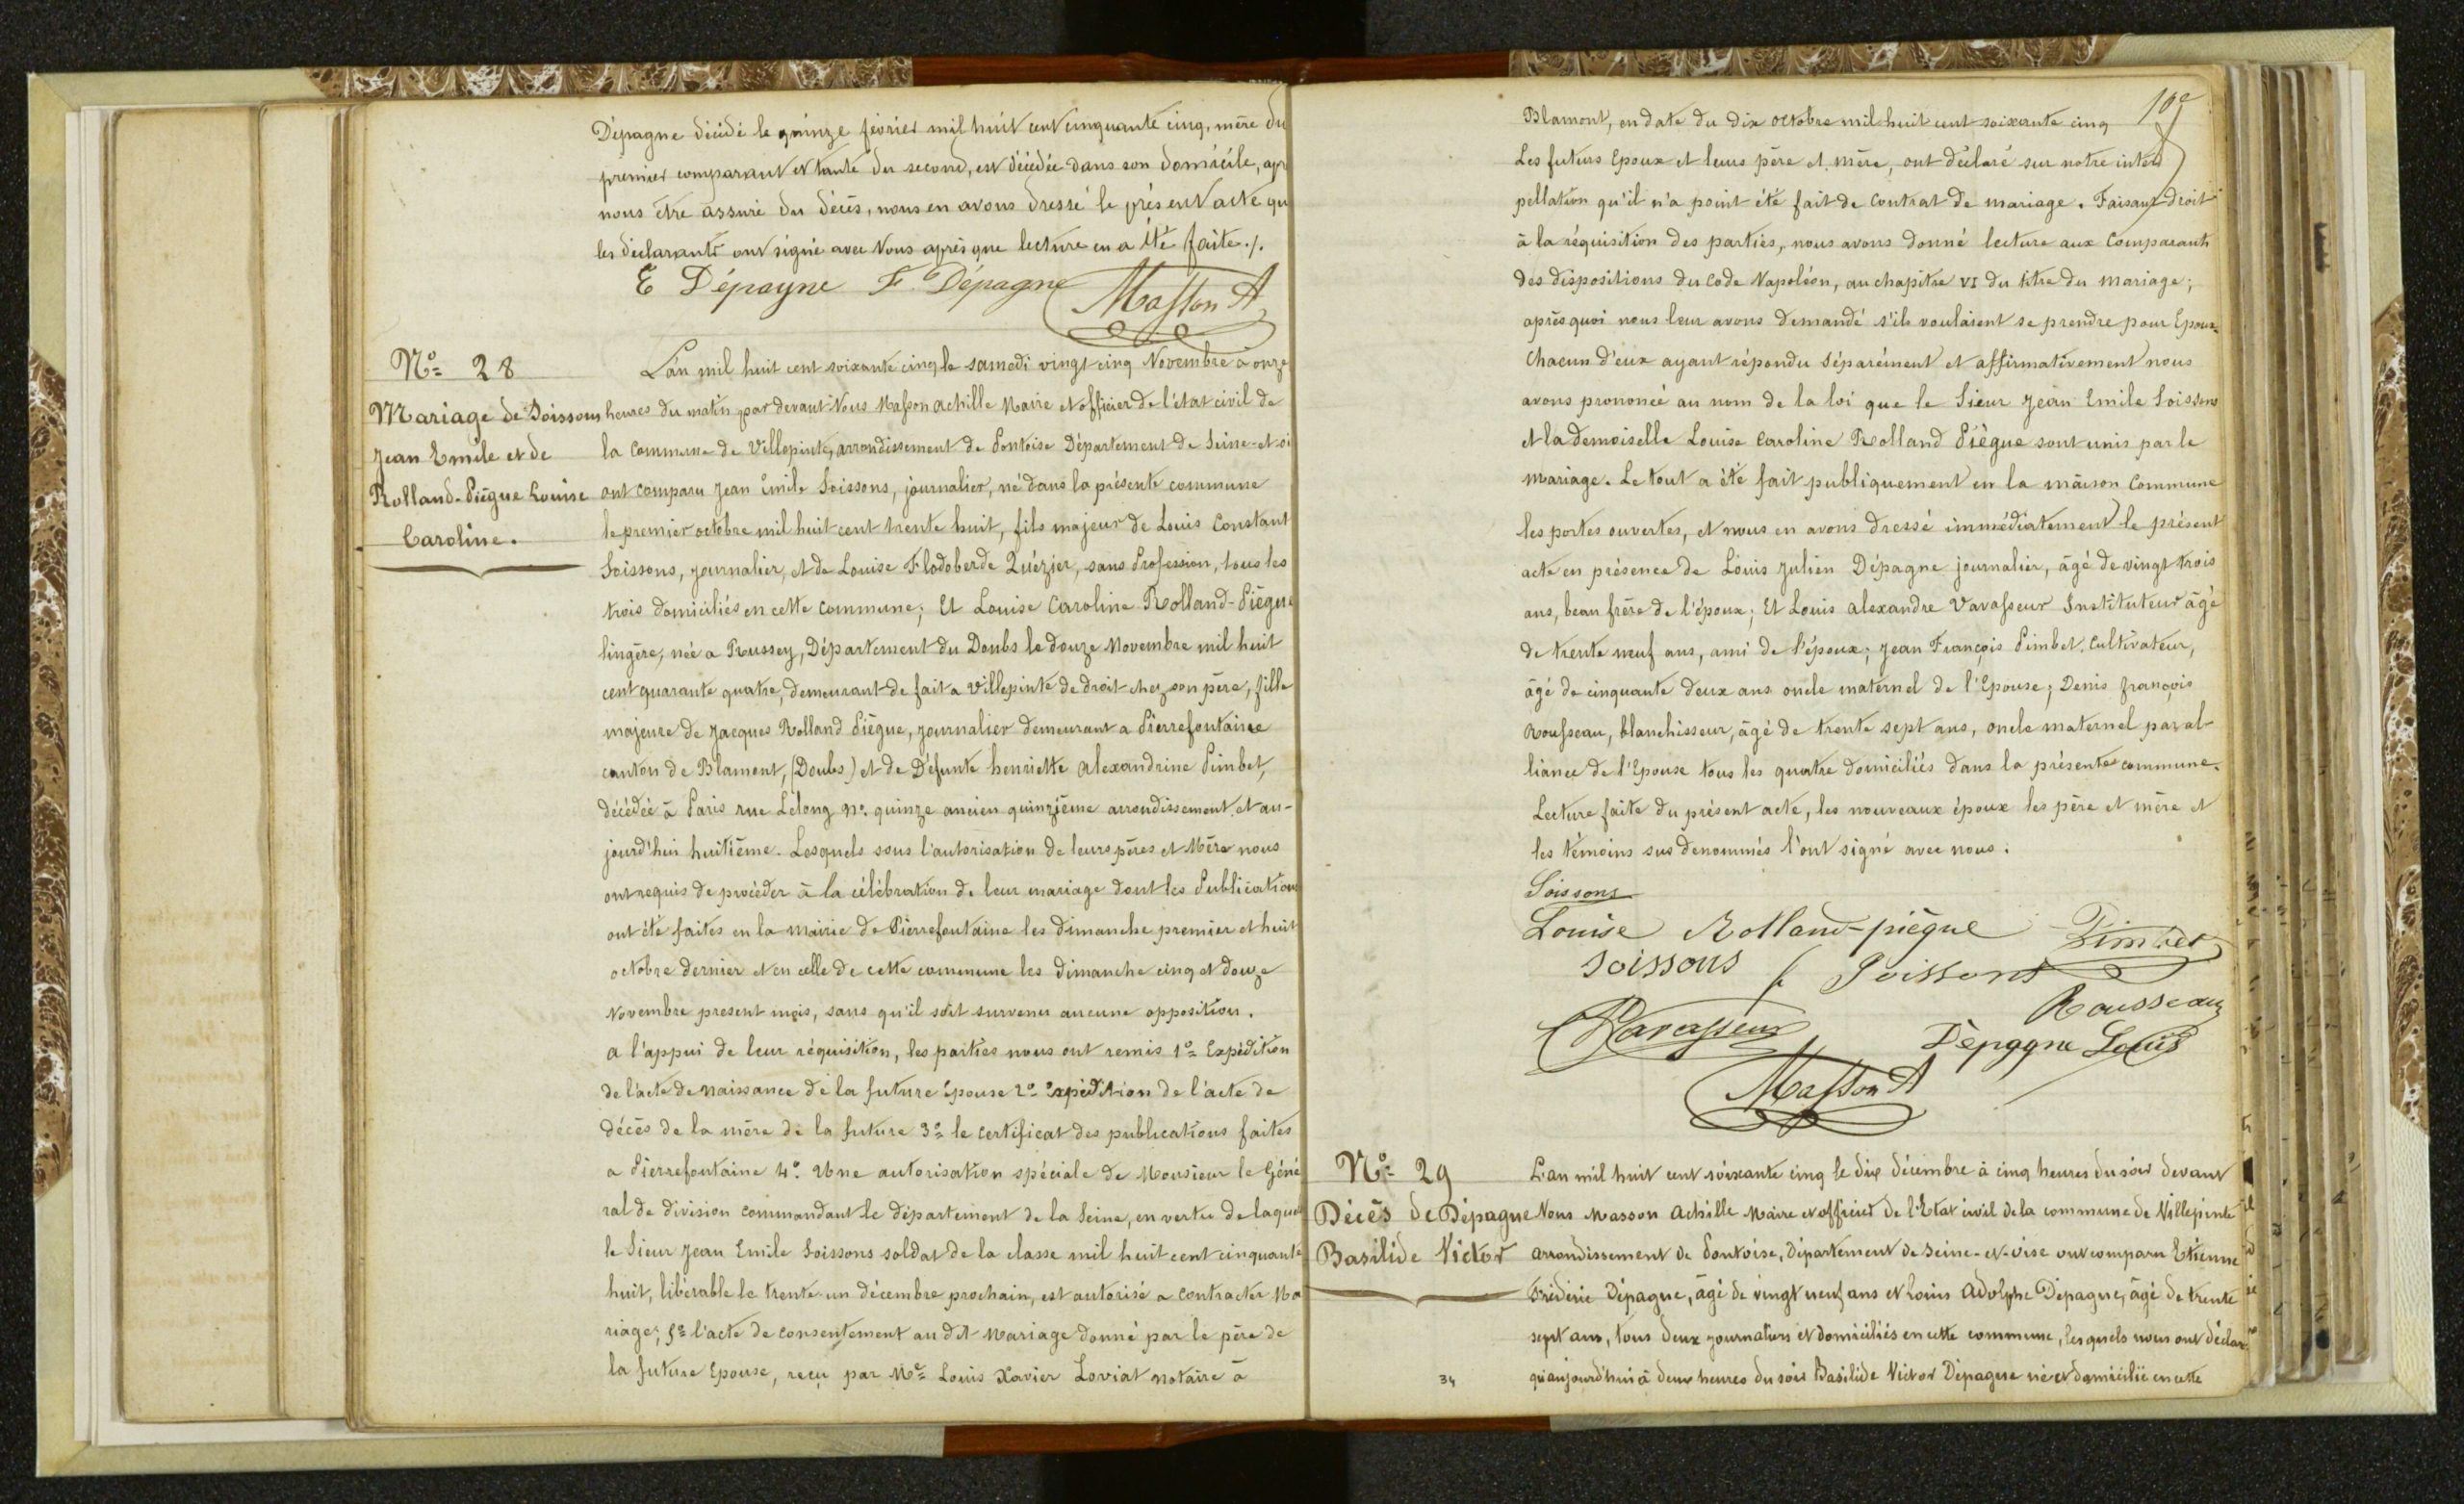 Dépagne décédé le quinze février mil huit cent cinquante cinq, mère du
premier comparant et tante du second, est décédée dans son domicile, apr
nous être assuré du décès, nous en avons dressé le présent acte qu
les déclarants ont signé avec Nous après que lecture en a été faite ./.
E Dépagne F. Dépagne Masson A
No= 28
Mariage de Soissons
Jean Emile et de
Rolland-Piègue Louise
Caroline.
L'an mil huit cent soixante cinq le samedi vingt cinq Novembre à onze
heures du matin par devant Nous Masson Achille Maire et officier de l'état civil de
la Commune de Villepinte, arrondissement de Pontoise Département de Seine-et-oi
ont comparu Jean Emile Soissons, journalier, né dans la présente commune
le premier octobre mil huit cent trente huit, fils majeur de Louis Constant
Soissons, journalier, et de Louise Flodoberde Quézier, sans Profession, tous les
trois domiciliés en cette commune; Et Louise Caroline Rolland-Piègue
lingère, née a Russey, Département du Doubs le douze Novembre mil huit
cent quarante quatre, demeurant de fait a Villepinte de droit chez son père, fille
majeure de Jacques Rolland Piègue, journalier demeurant a Pierrefontaine
canton de Blamont, (Doubs) et de Défunte henriette Alexandrine Pimbet,
décédée à Paris rue Lelong no. quinze ancien quinzième arrondissement et au-
jourd'hui huitième. Lesquels sous l'autorisation de leurs pères et Mère nous
ont requis de procéder à la célébration de leur mariage dont les Publications
ont été faites en la mairie de Pierrefontaine les dimanche premier et huit
octobre dernier et en celle de cette commune les dimanche cinq et douze
Novembre present mois, sans qu'il soit survenu aucune opposition.
a l'appui de leur réquisition, les parties nous ont remis 1o= Expédition
de l'acte de naissance de la future épouse 2o= Expédition de l'acte de
décès de la mère de la future 3o= le certificat des publications faites
a Pierrefontaine 4o. Une autorisation spéciale de Monsieur le Géné
ral de division commandant le département de la Seine, en vertu de laquel
le Sieur Jean Emile Soissons soldat de la classe mil huit cent cinquante
huit, libérable le trente-un décembre prochain, est autorisé a contracter Ma
riage; 5o= l'acte de consentement au dit Mariage donné par le père de
la future Epouse, reçu par Me= Louis Xavier Loviat notaire à
Blamont, en date du dix octobre mil huit cent soixante cinq
Les futurs Epoux et leurs père et mère, ont déclaré sur notre inter
pellation qu'il n'a point été fait de Contrat de mariage. Faisant droit
à la réquisition des parties, nous avons donné lecture aux Comparants
des dispositions du Code Napoléon, au chapitre VI du titre du mariage;
après quoi nous leur avons demandé s'ils voulaient se prendre pour Epoux.
Chacun d'eux ayant répondu séparément et affirmativement nous
avons prononcé au nom de la loi que le Sieur Jean Emile Soissons
et la demoiselle Louise Caroline Rolland Piègue sont unis par le
mariage. Le tout a été fait publiquement en la maison Commune
les portes ouvertes, et nous en avons dressé immédiatement le présent
acte en présence de Louis Julien Dépagne journalier, âgé de vingt trois
ans, beau frère de l'époux; Et Louis Alexandre Vavasseur Instituteur âgé
de trente neuf ans, ami de l'époux; Jean François Pimbet, Cultivateur,
âgé de cinquante deux ans oncle maternel de l'Epouse; Denis françois
Rousseau, blanchisseur, âgé de trente sept ans, oncle maternel par al-
liance de l'Epouse tous les quatre domiciliés dans la présente commune.
Lecture faite du présent acte, les nouveaux époux les père et mère et
les témoins sus denommés l'ont signé avec nous:
Soissons
Louise Rolland-piègue Pimbet
Soissons f Soissons
Rousseau
Vavasseur Dépagne Louis
Masson A
No= 29
Décès de Dépagne
Basilide Victor
L'an mil huit cent soixante cinq le dix décembre à cinq heures du soir devant
Nous Masson Achille Maire et officier de l'Etat civil de la commune de Villepinte
arrondissement de Pontoise, département de Seine-et-oise ont comparu Etienne
Frédéric Dépagne, âgé de vingt neuf ans et Louis Adolphe Dépagne, âgé de trente
sept ans, tous deux journaliers et domiciliés en cette commune, lesquels nous ont déclaré
qu'aujourd'hui à deux heures du soir Basilide Victor Dépagne né et domicilié en cette
34